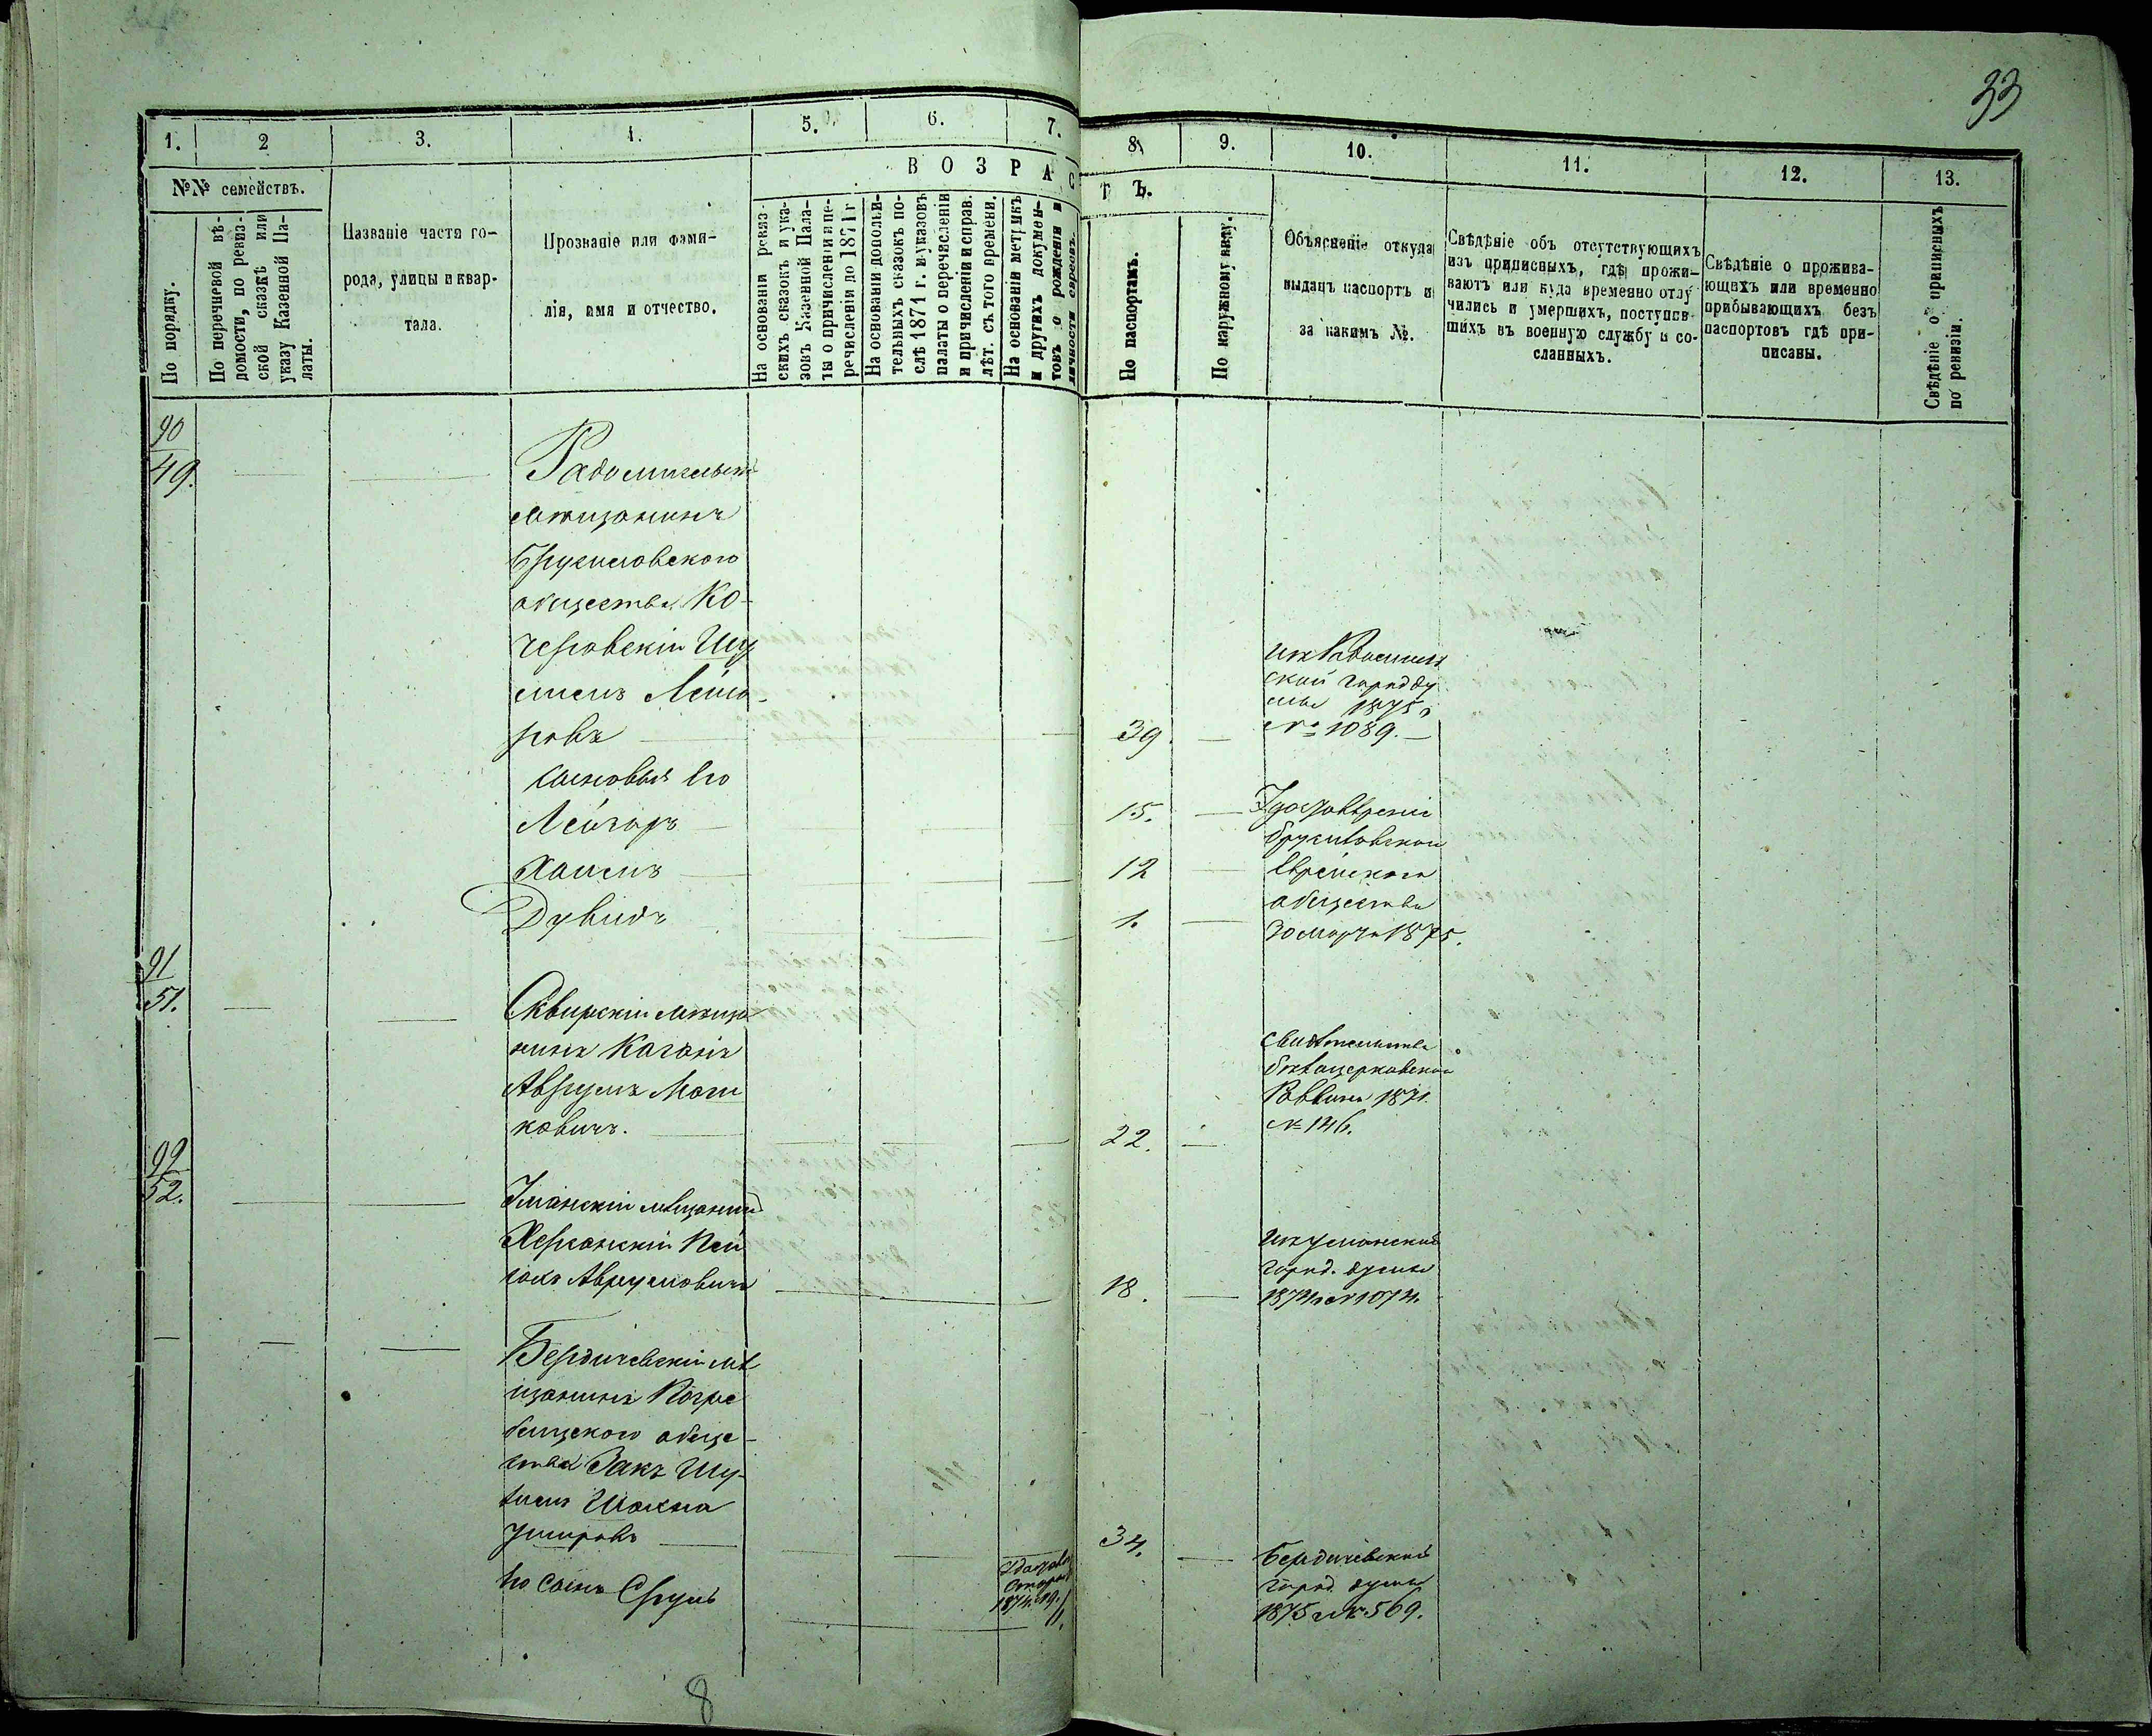 33
1.
2
3.
4.
5.
6.
7.
8.
9.
10.
11.
12.
13.
№№ семействъ.
По порядку.
По перечневой вѣ-
домости, по ревиз-
ской сказкѣ или
указу Казенной Па-
латы.
Названіе части го-
рода, улицы и квар-
тала.
Прозваніе или фами-
лія, имя и отчество.
ВОЗРАСТЪ.
На основаніи ревиз-
скихъ сказокъ и ука-
зовъ Казенной Пала-
ты о причисленіи и пе-
речисленіи до 1871 г.
На основаніи дополни-
тельныхъ сказокъ по-
слѣ 1871 г. и указовъ
палаты о перечисленіи
и причисленіи и справ.
лѣт. съ того времени.
На основаніи метрикъ
и другихъ докумен-
товъ о рожденіи и
личности евреевъ.
По паспортамъ.
По наружному виду.
Объясненіе откуда
выданъ паспортъ и
за какимъ №.
Свѣдѣніе объ отсутствующихъ
изъ приписныхъ, гдѣ прожи-
ваютъ или куда временно отлу
чились и умершихъ, поступив-
шихъ въ военную службу и со-
сланныхъ.
Свѣдѣніе о прожива-
ющихъ или временно
прибывающихъ безъ
паспортовъ гдѣ при-
писаны.
Свѣдѣніе о приписныхъ
по ревизіи.
90
49.
Радомысльскі
мѣщанинъ
Брусиловскаго
общества Ко-
черовскій Шу
лимъ Лейзо-
ровъ
39.
Изъ Радомысл
ской город ду
мы 1875 г
№ 1089.
сыновья его
Лейзоръ
15.
Хаимъ
12
Дувидъ
1.
Удостовѣреніе
Брусиловскаго
Еврейскаго
общества
30 марта 1875.
91
51.
Сквирскій мѣща
нинъ Каганъ
Аврумъ Мош
ковичъ.
22.
Свидѣтельство
бѣлоцерковскаго
Раввина 1871.
№ 146.
92
52.
Уманскій мѣщанинъ
Херсонскій
Аврумовичъ
18.
Изъ уманской
город. думы
1874 г № 1074.
Бердичевскій мѣ
щанинъ Погре
бищскаго обще-
ства Закъ Шу-
Шахна
Ушеровъ
34.
Бердичевской
город. думы
1875 г № 569.
Его сынъ Сруль
1874.
11.
8